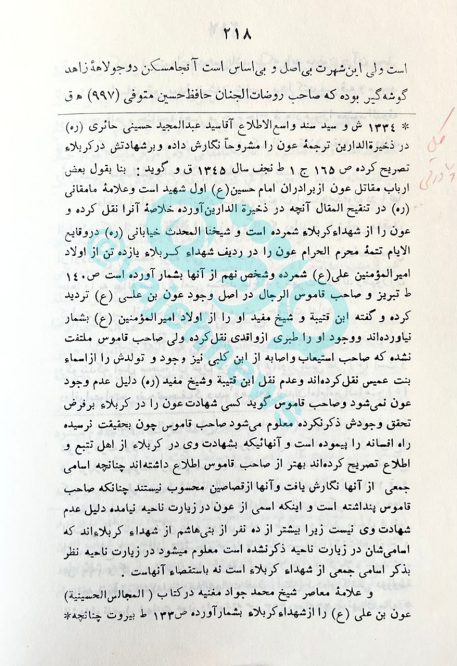 ۲۱۸
است ولی این شهرت بی اصل و بی اساس است آنجا مسکن دو جولاههٔ زاهد
گوشه گیر بوده که صاحب روضات الجنان حافظ حسین متوفی (۹۹۷) ه ق
* ۱۳۳٤ ش و سید سند واسع الاطلاع آقا سید عبدالمجید حسینی حائری (ره)
در ذخیرة الدارین ترجمهٔ عون را مشروحاً نگارش داده و بر شهادتش در کربلاء
تصریح کرده ص ۱٦٥ ج ۱ ط نجف سال ۱۳٤٥ ق و گوید : بنا بقول بعض
ارباب مقاتل عون از برادران امام حسین (ع) اول شهید است و علامهٔ مامقانی
(ره) در تنقیح المقال آنچه در ذخیرة الدارین آورده خلاصهٔ آنرا نقل کرده و
عون را از شهداء کربلاء شمرده است و شیخنا المحدث خیابانی (ره) در وقایع
الایام تتمهٔ محرم الحرام عون را در ردیف شهداء کربلاء یازده تن از اولاد
امیر المؤمنین علی (ع) شمرده و شخص نهم از آنها بشمار آورده است ص ۱٤۰
ط تبریز و صاحب قاموس الرجال در اصل وجود عون بن علی (ع) تردید
کرده و گفته ابن قتیبة و شیخ مفید او را از اولاد امیر المؤمنین (ع) بشمار
نیاورده اند و وجود او را طبری از واقدی نقل کرده ولی صاحب قاموس ملتفت
نشده که صاحب استیعاب و اصابه از ابن کلبی نیز وجود و تولدش را از اسماء
بنت عمیس نقل کرده اند و عدم نقل ابن قتیبة و شیخ مفید (ره) دلیل عدم وجود
عون نمی شود و صاحب قاموس گوید کسی شهادت عون را در کربلاء بر فرض
تحقق وجودش ذکر نکرده معلوم می شود صاحب قاموس چون بحقیقت نرسیده
راه افسانه را پیموده است و آنهائیکه بشهادت وی در کربلاء از اهل تتبع و
اطلاع تصریح کرده اند بهتر از صاحب قاموس اطلاع داشته اند چنانچه اسامی
جمعی از آنها نگارش یافت و آنها از قصاصین محسوب نیستند چنانکه صاحب
قاموس پنداشته است و اینکه اسمی از عون در زیارت ناحیه نیامده دلیل عدم
شهادت وی نیست زیرا بیشتر از ده نفر از بنی هاشم از شهداء کربلاء اند که
اسامی شان در زیارت ناحیه ذکر نشده است معلوم میشود در زیارت ناحیه نظر
بذکر اسامی جمعی از شهداء کربلاء است نه باستقصاء آنهاست .
و علامهٔ معاصر شیخ محمد جواد مغنیه در کتاب ( المجالس الحسینیة )
عون بن علی (ع) را از شهداء کربلاء بشمار آورده ص ۱۳۳ ط بیروت چنانچه *